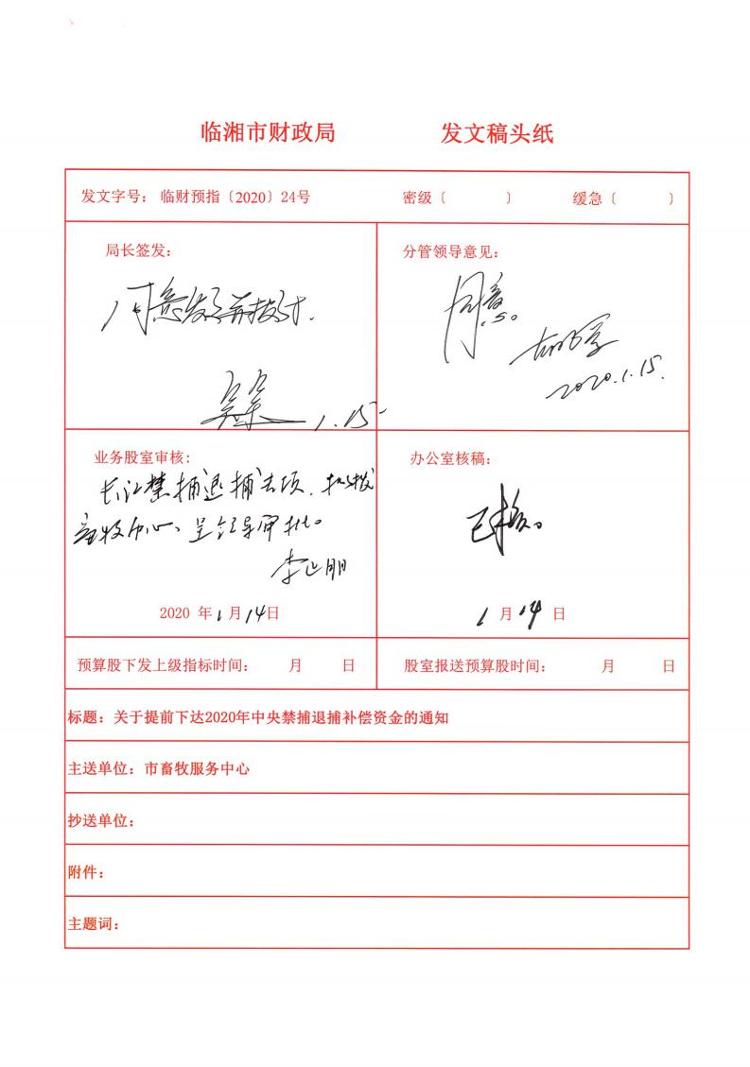 临湘市财政局 发文稿头纸
发文字号：临财预指〔2020〕24号 密级〔 〕 缓急〔 〕
局长签发：
同意发了并拨付.
1.15
分管领导意见：
同意。
2020.1.15.
业务股室审核：
长江禁捕退捕专项、拟拨
畜牧中心、呈领导审批。
2020 年 1 月 14 日
办公室核稿：
已核。
1 月 14 日
预算股下发上级指标时间： 月 日 股室报送预算股时间： 月 日
标题：关于提前下达2020年中央禁捕退捕补偿资金的通知
主送单位：市畜牧服务中心
抄送单位：
附件：
主题词：